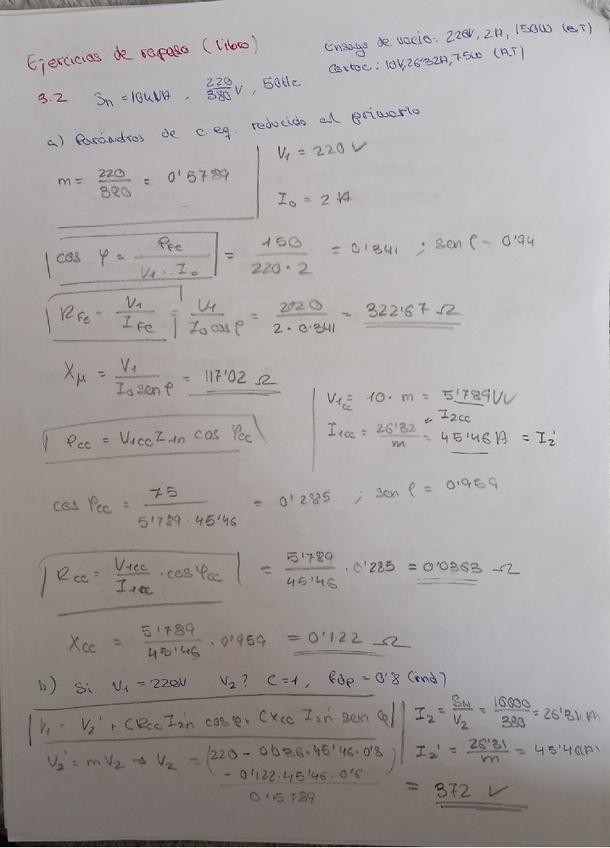 Ejercicios de repaso (libro)
Ensayo de vacio: 220V, 2A, 150W (BT)
Cortoc: 10V, 26'32A, 75W (A.T)
3.2 Sn = 10kVA . 220/380 V, 50Hz
a) Parámetros de c. eq. reducido al primario
m = 220/380 = 0'5789
V1 = 220V
I0 = 2A
cos φ = PFe / V1 . I0 = 150 / 220·2 = 0'341 ; sen φ = 0'94
RFe = V1 / IFe = V1 / I0 cos φ = 220 / 2·0'341 = 322'67 Ω
Xμ = V1 / I0 sen φ = 117'02 Ω
V1cc = 10·m = 5'789 V
Pcc = V1cc I1n cos φcc
I2cc
I1cc = 26'32 / m = 45'46A = I2'
cos φcc = 75 / 5'789·45'46 = 0'285 ; sen φ = 0'959
Rcc = V1cc / I1cc · cos φcc = 5'789 / 45'46 · 0'285 = 0'0363 Ω
Xcc = 5'789 / 45'46 · 0'959 = 0'122 Ω
b) Si V1 = 220V V2? C=1, fdp = 0'8 (ind)
V1 = V2' + C Rcc I2n' cos φ + C Xcc I2n' sen φ
I2 = SN / V2 = 10000 / 380 = 26'31(A)
V2' = m V2 → V2 = (220 - 0'036·45'46·0'8 - 0'122·45'46·0'6) / 0'5789 = 372 V
I2' = 26'31 / m = 45'46(A)